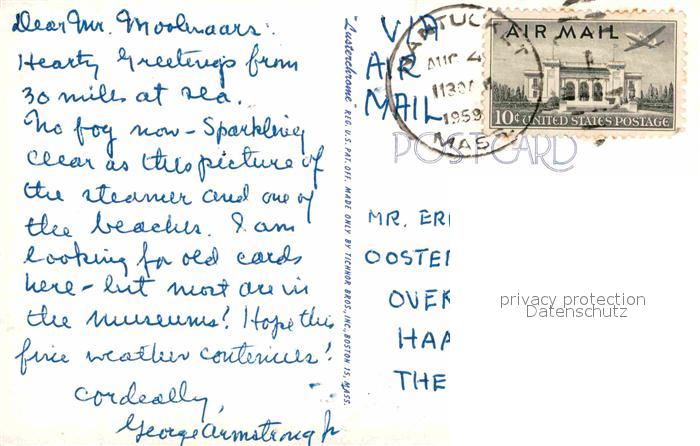 Dear Mr. Moolenaars:
Hearty Greetings from
30 miles at sea.
No fog now - Sparkling
clear as this picture of
the steamer and one of
the beaches. I am
looking for old cards
here - but most are in
the museums! Hope this
fine weather continues!
Cordeally,
George Armstrong Jr
"Lusterchrome" REG. U.S. PAT. OFF. MADE ONLY BY TICHNOR BROS., INC., BOSTON 15, MASS.
VIA
AIR
MAIL
NANTUCKET
AUG 4
1130AM
1959
MASS
AIR MAIL
10¢ UNITED STATES POSTAGE
POST CARD
MR. ERI
OOSTE
OVER
HAA
THE
privacy protection
Datenschutz